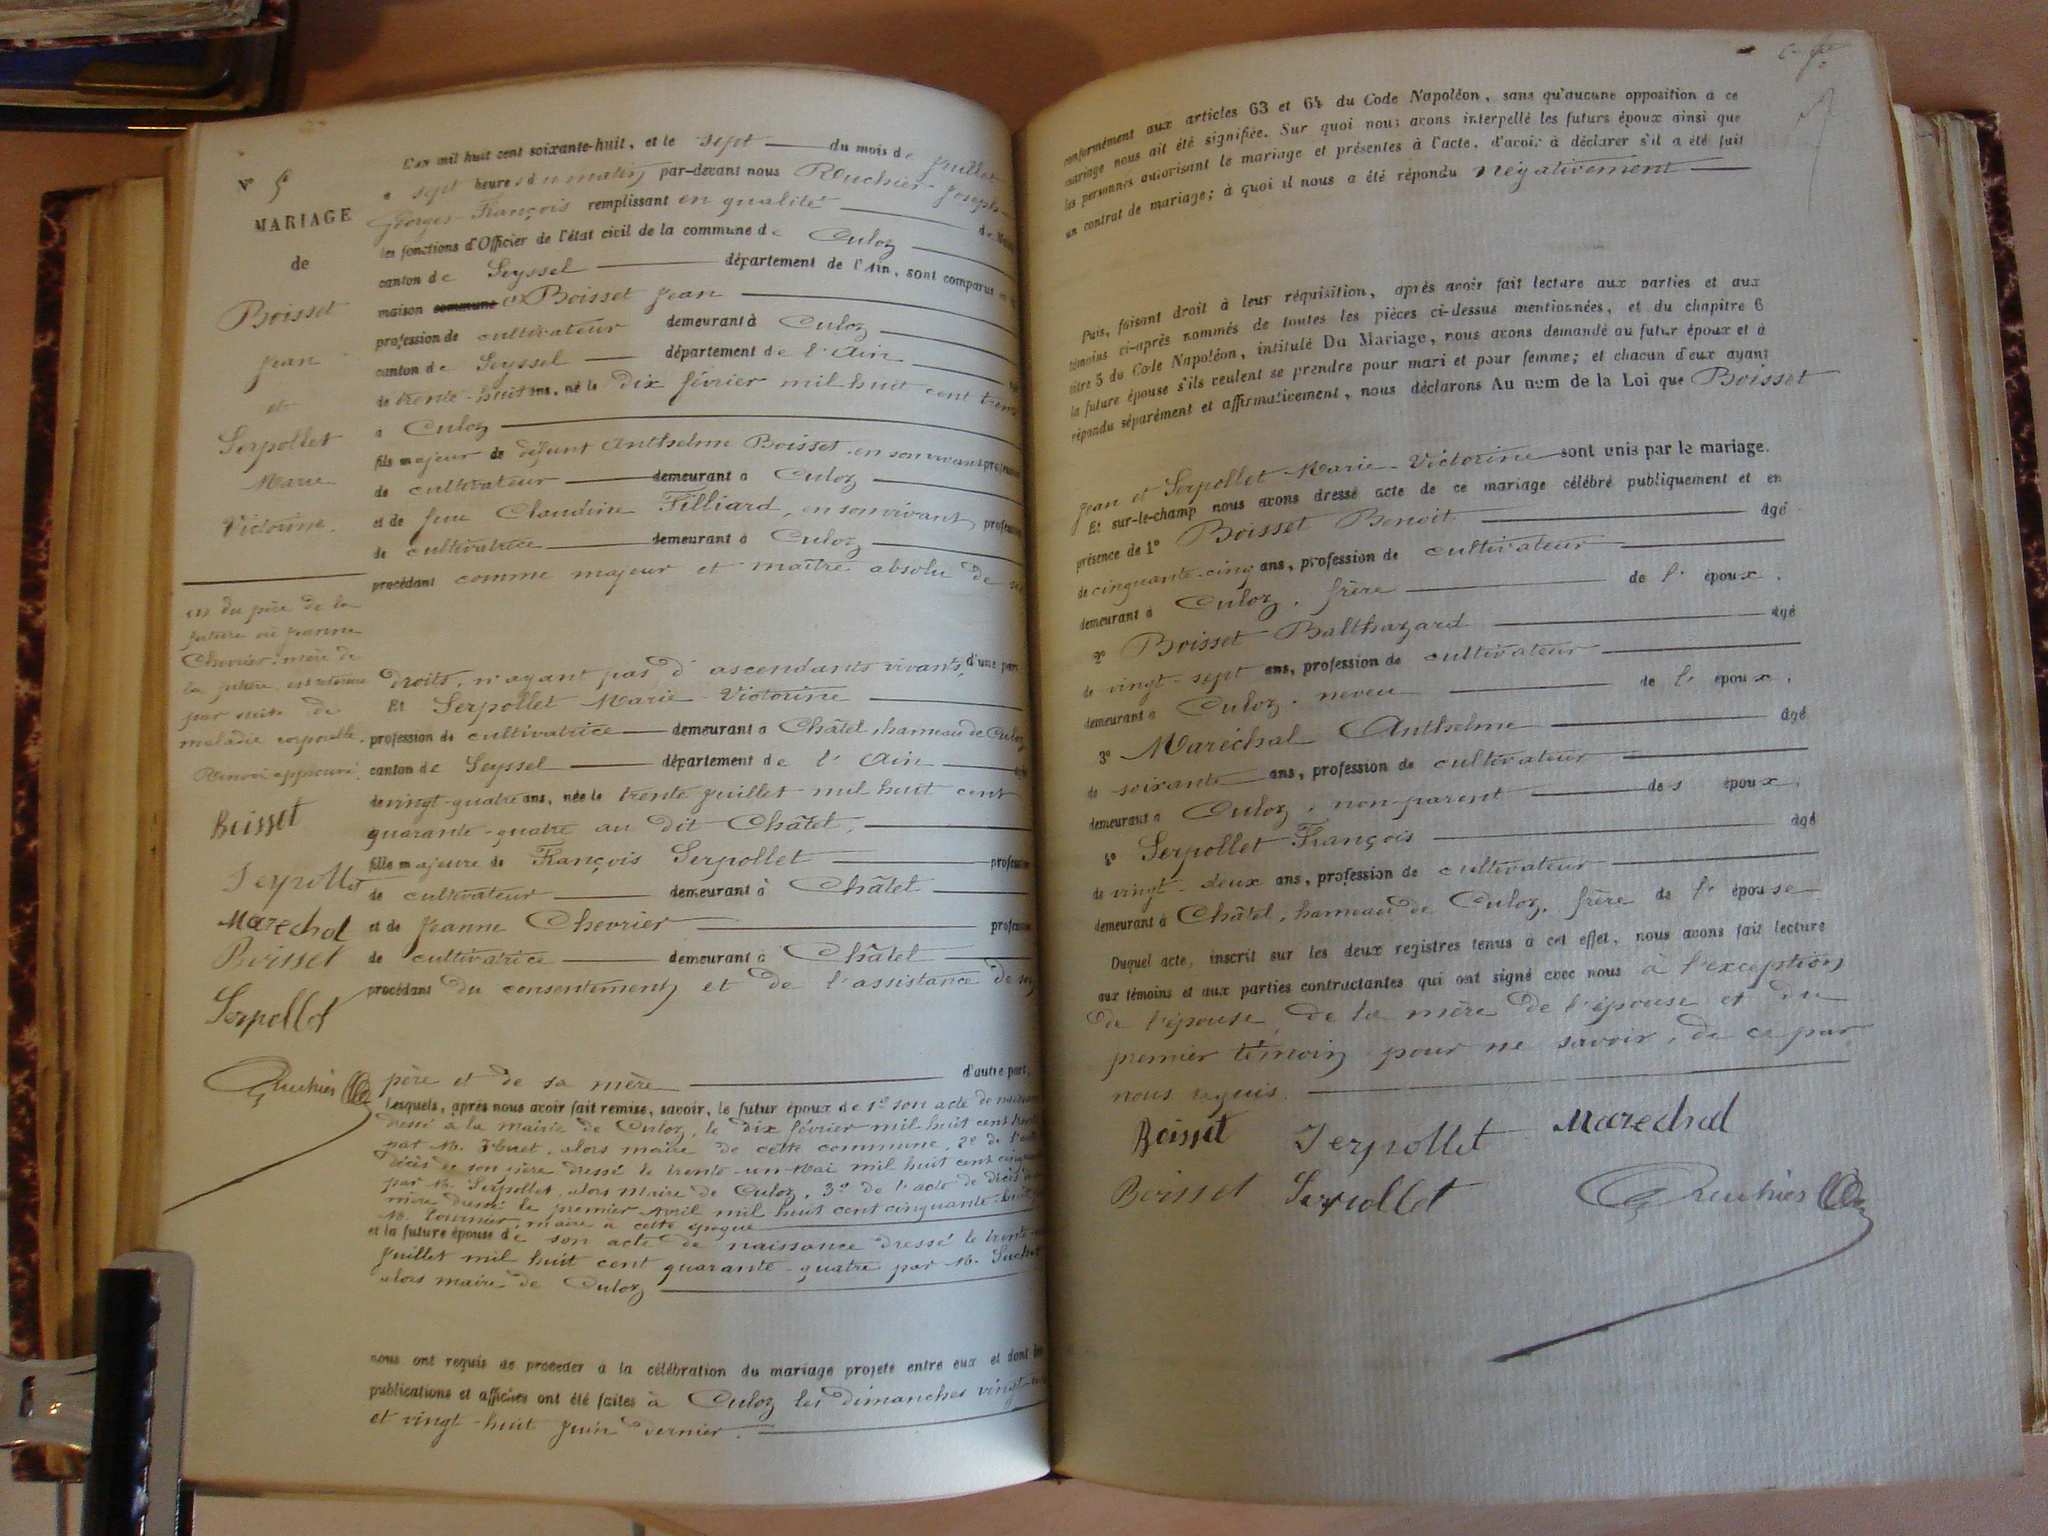 N° 5
MARIAGE
de
Boisset
Jean
et
Serpollet
Marie
Victorine.
(1) du père de la
future où Jeanne
Chevrier, mère de
la future, est retenue
par suite de
maladie corporelle.
Renvoi approuvé.
Boisset
Serpollet
Marechal
Boisset
Serpollet
L'an mil huit cent soixante-huit, et le sept du mois de Juillet
à sept heures du matin, par-devant nous Rouchier Joseph
Georges François remplissant en qualité de
les fonctions d'Officier de l'état civil de la commune de Culoz
canton de Seyssel département de l'Ain, sont comparus en
maison commune Boisset Jean
profession de cultivateur demeurant à Culoz
canton de Seyssel département de l'Ain
de trente-huit ans, né le dix février mil huit cent trente
à Culoz
fils majeur de défunt Anthelme Boisset, en son vivant profession
de cultivateur demeurant à Culoz
et de feue Claudine Filliard, en son vivant, profession
de cultivatrice demeurant à Culoz
procédant comme majeur et maître absolu de ses
droits, n'ayant pas d'ascendants vivants, d'une part
Et Serpollet Marie Victorine
profession de cultivatrice demeurant à Châtel, hameau de Culoz
canton de Seyssel département de l'Ain
de vingt-quatre ans, née le trente Juillet mil huit cent
quarante-quatre au dit Châtel,
fille majeure de François Serpollet profession
de cultivateur demeurant à Châtel
et de Jeanne Chevrier profession
de cultivatrice demeurant à Châtel
procédant du consentement et de l'assistance de son
père et de sa mère d'autre part,
Lesquels, après nous avoir fait remise, savoir, le futur époux de 1° son acte de naissance
dressé à la mairie de Culoz, le dix février mil huit cent trente
par M. alors maire de cette commune, 2° de l'acte
décès de son père dressé le trente-un Mai mil huit cent
par M. Serpollet, alors Maire de Culoz, 3° de l'acte de décès de
mère dressé le premier Avril mil huit cent cinquante-huit
M. Fournier, maire à cette époque
et la future épouse de son acte de naissance dressé le trente
Juillet mil huit cent quarante-quatre par M.
alors maire de Culoz
nous ont requis de procéder à la célébration du mariage projeté entre eux et dont les
publications et affiches ont été faites à Culoz les dimanches vingt
et vingt-huit Juin dernier.
conformément aux articles 63 et 64 du Code Napoléon, sans qu'aucune opposition à ce
mariage nous ait été signifiée. Sur quoi nous avons interpellé les futurs époux ainsi que
les personnes autorisant le mariage et présentes à l'acte, d'avoir à déclarer s'il a été fait
un contrat de mariage; à quoi il nous a été répondu négativement
Puis, faisant droit à leur réquisition, après avoir fait lecture aux parties et aux
témoins ci-après nommés de toutes les pièces ci-dessus mentionnées, et du chapitre 6
titre 5 du Code Napoléon, intitulé Du Mariage, nous avons demandé au futur époux et à
la future épouse s'ils veulent se prendre pour mari et pour femme; et chacun d'eux ayant
répondu séparément et affirmativement, nous déclarons Au nom de la Loi que Boisset
Jean et Serpollet Marie-Victorine sont unis par le mariage.
Et sur-le-champ nous avons dressé acte de ce mariage célébré publiquement et en
présence de 1° Boisset Benoit âgé
de cinquante-cinq ans, profession de cultivateur
demeurant à Culoz, frère de l'époux.
2° Boisset Balthazard âgé
de vingt-sept ans, profession de cultivateur
demeurant à Culoz, neveu de l'époux.
3° Maréchal Anthelme âgé
de soixante ans, profession de cultivateur
demeurant à Culoz, non-parent des époux.
4° Serpollet François âgé
de vingt-deux ans, profession de cultivateur
demeurant à Châtel, hameau de Culoz, frère de l'épouse
Duquel acte, inscrit sur les deux registres tenus à cet effet, nous avons fait lecture
aux témoins et aux parties contractantes qui ont signé avec nous à l'exception
de l'épouse, de la mère de l'épouse et du
premier témoin pour ne savoir, de ce par
nous requis.
Boisset Serpollet Marechal
Boisset Serpollet